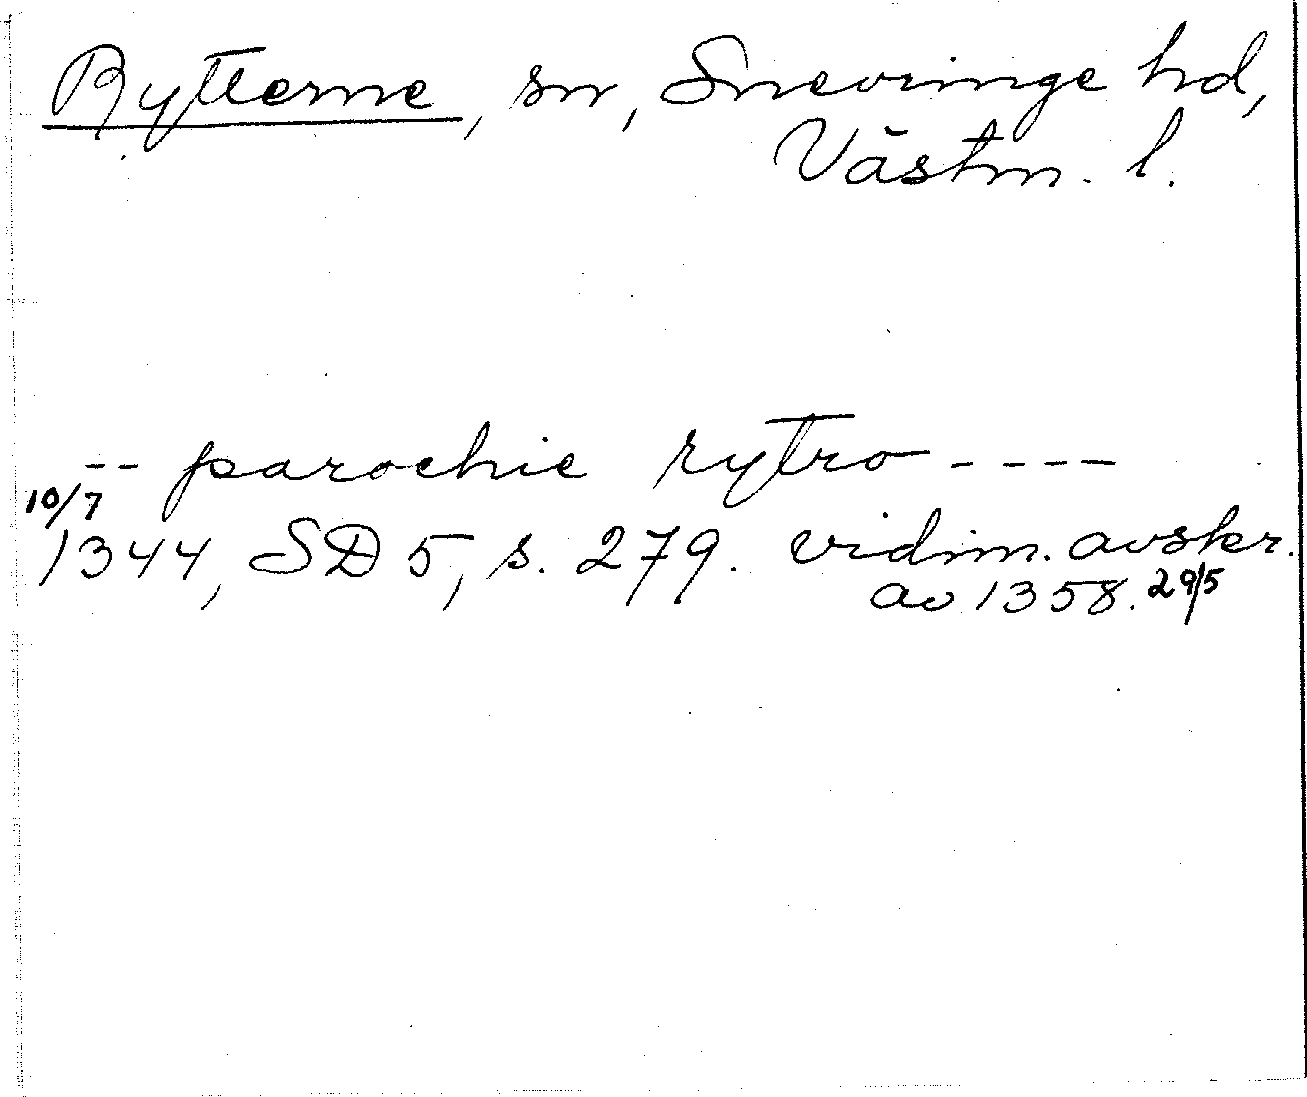 Rytterne, sn, Snevringe hd,
Västm. l.
-- parochie rytro ----
10/7
1344, SD 5, s. 279. vidim. avskr.
av 1358. 29/5